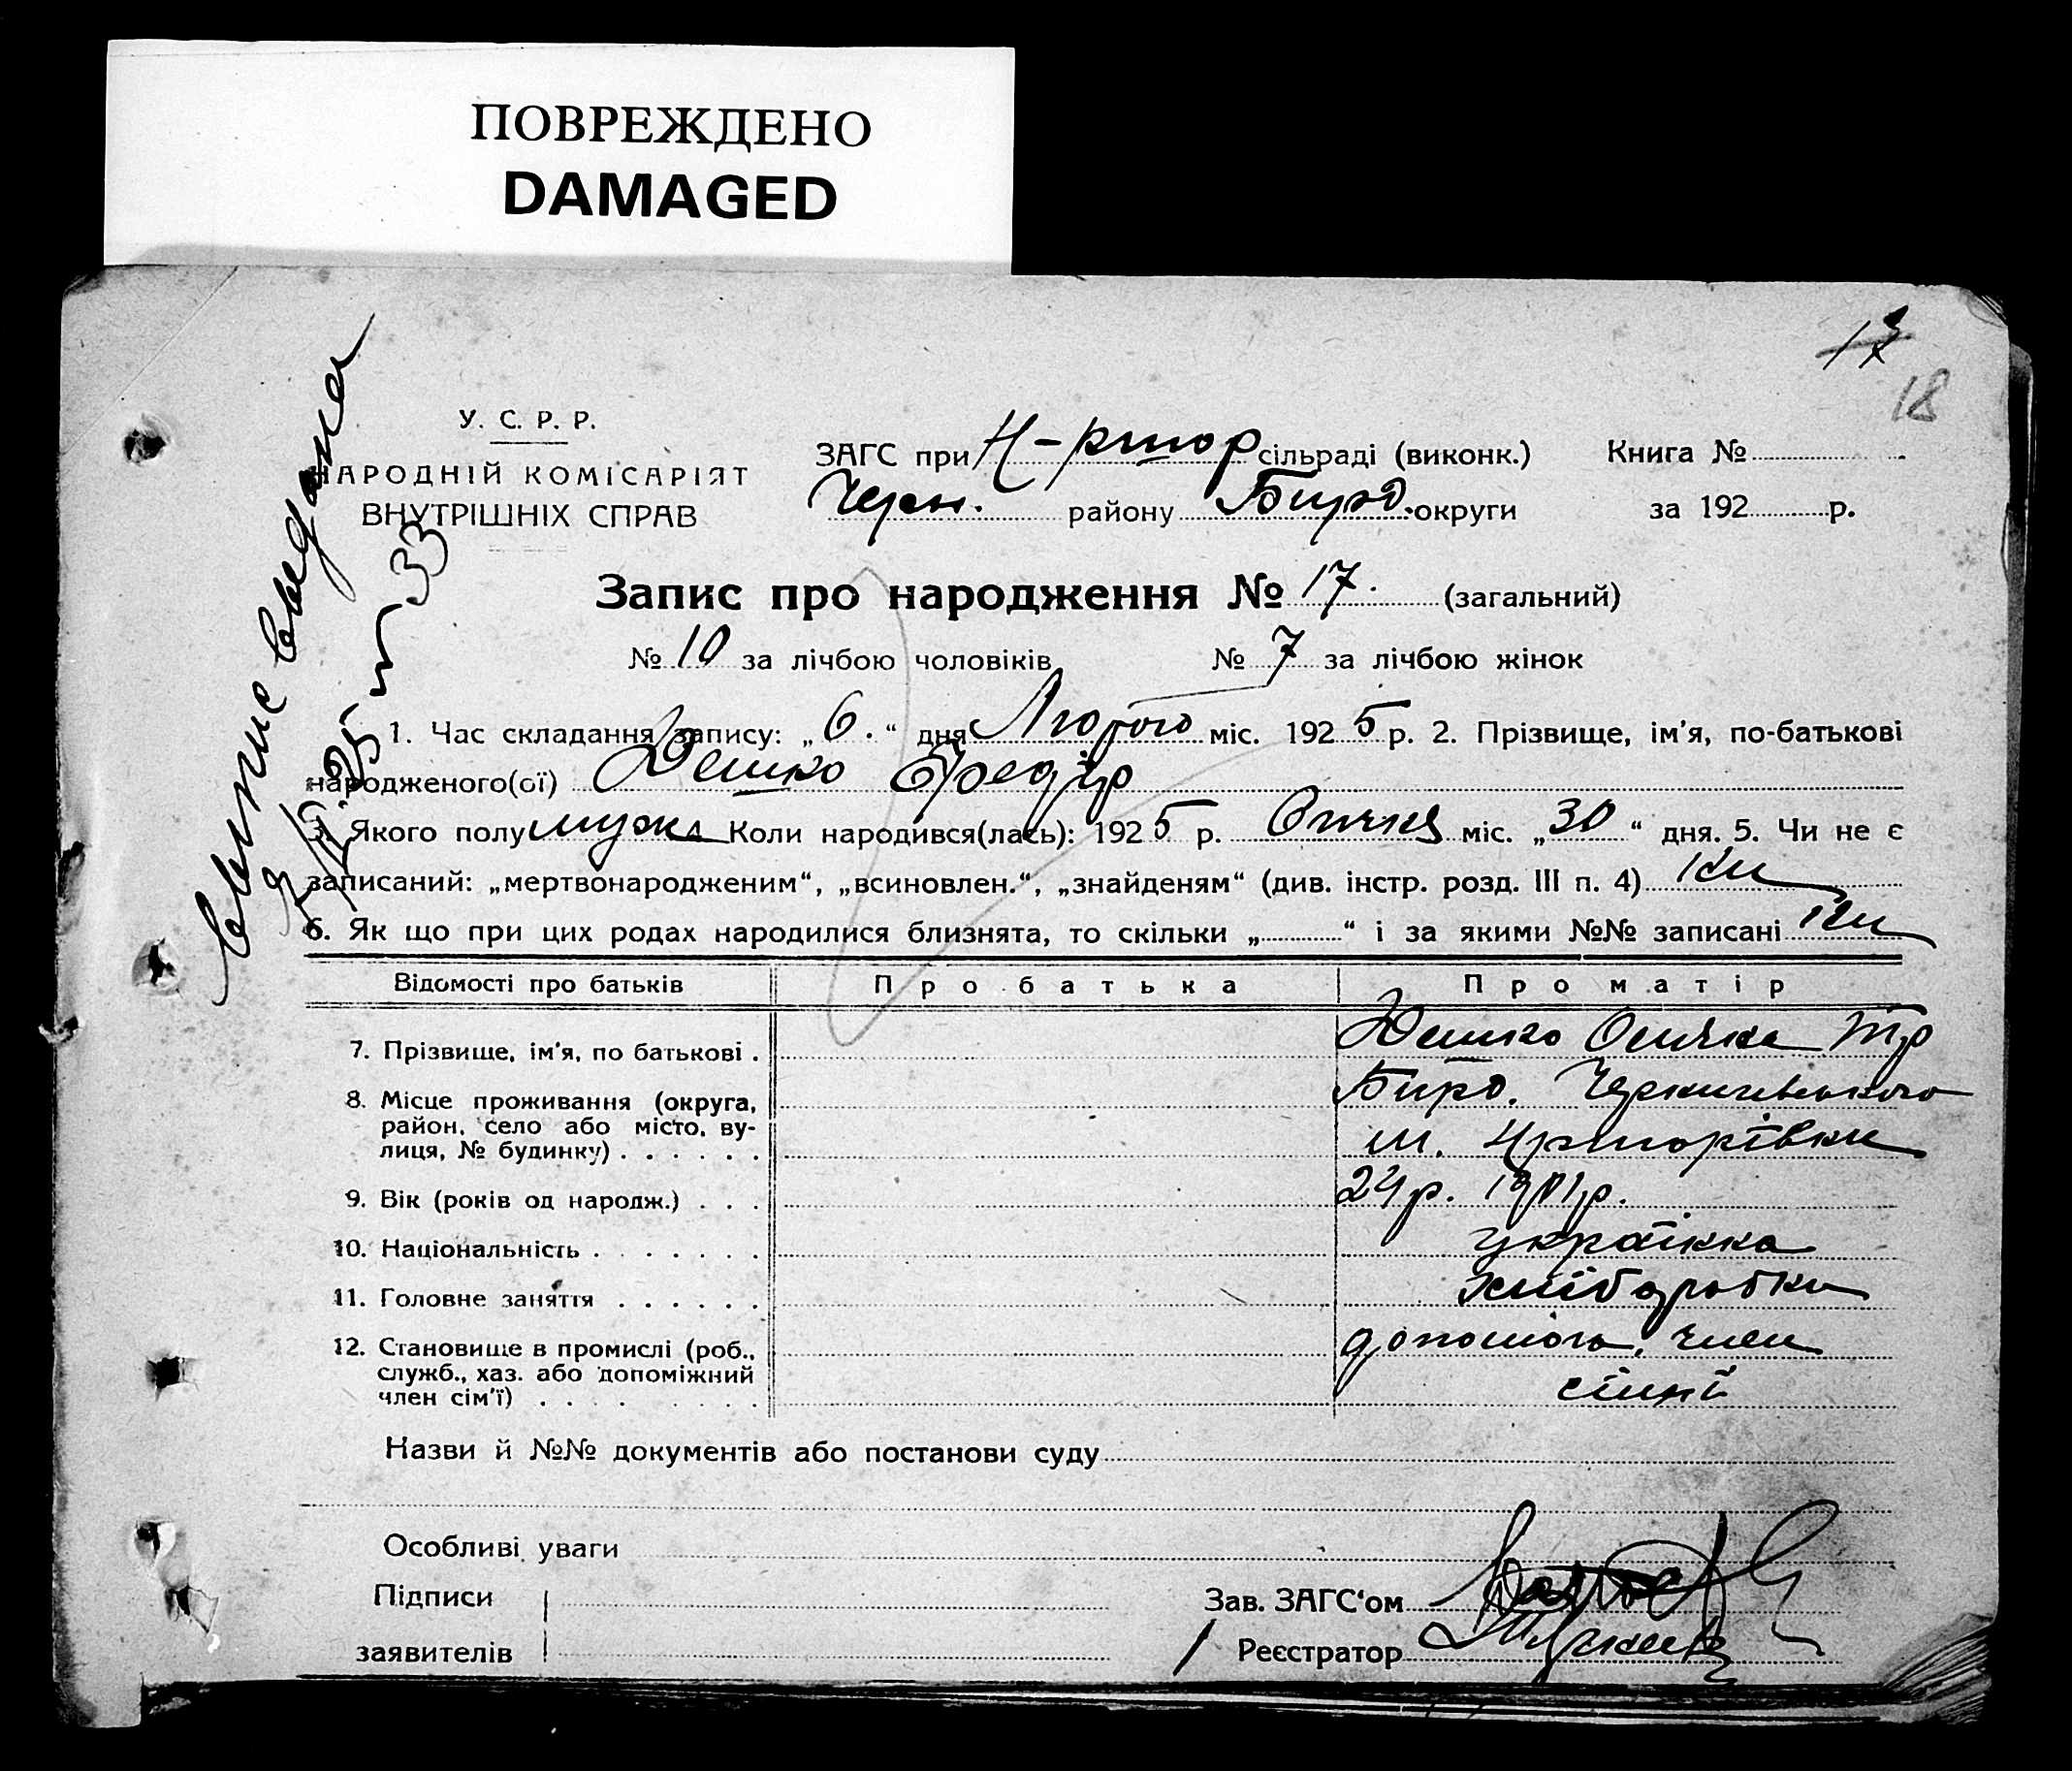 ПОВРЕЖДЕНО
DAMAGED
17
18
У. С. Р. Р.
НАРОДНІЙ КОМІСАРІЯТ
ВНУТРІШНІХ СПРАВ
ЗАГС при сільраді (виконк.) Книга №
Черн. району округи за 192 р.
Запис про народження № 17. (загальний)
№ 10 за лічбою чоловіків № 7 за лічбою жінок
1. Час складання запису: „ 6. “ дня Лютого міс. 192 5 р. 2. Прізвище, ім'я, по-батькові
народженого(ої) Дешко Федір
3. Якого полу муж. 4. Коли народився(лась): 192 5 р. Січня міс. „ 30 “ дня. 5. Чи не є
записаний: „мертвонародженим“, „всиновлен.“, „знайденям“ (див. інстр. розд. III п. 4) Ні
6. Як що при цих родах народилися близнята, то скільки „ “ і за якими №№ записані Ні
Відомості про батьків Про батька Про матір
7. Прізвище, ім'я, по батькові . Дешко
8. Місце проживання (округа, район, село або місто, вулиця, № будинку) . . . . . . Бирд. Чернигівського
9. Вік (років од народж.) . . . 24 р. 1901 р.
10. Національність . . . . . . . українка
11. Головне заняття . . . . . . хліборобка
12. Становище в промислі (роб., служб., хаз. або допоміжний член сім'ї) . . . . допоміжн. член
сімї
Назви й №№ документів або постанови суду
Особливі уваги
Підписи
заявителів
Зав. ЗАГС‘ом
Реєстратор